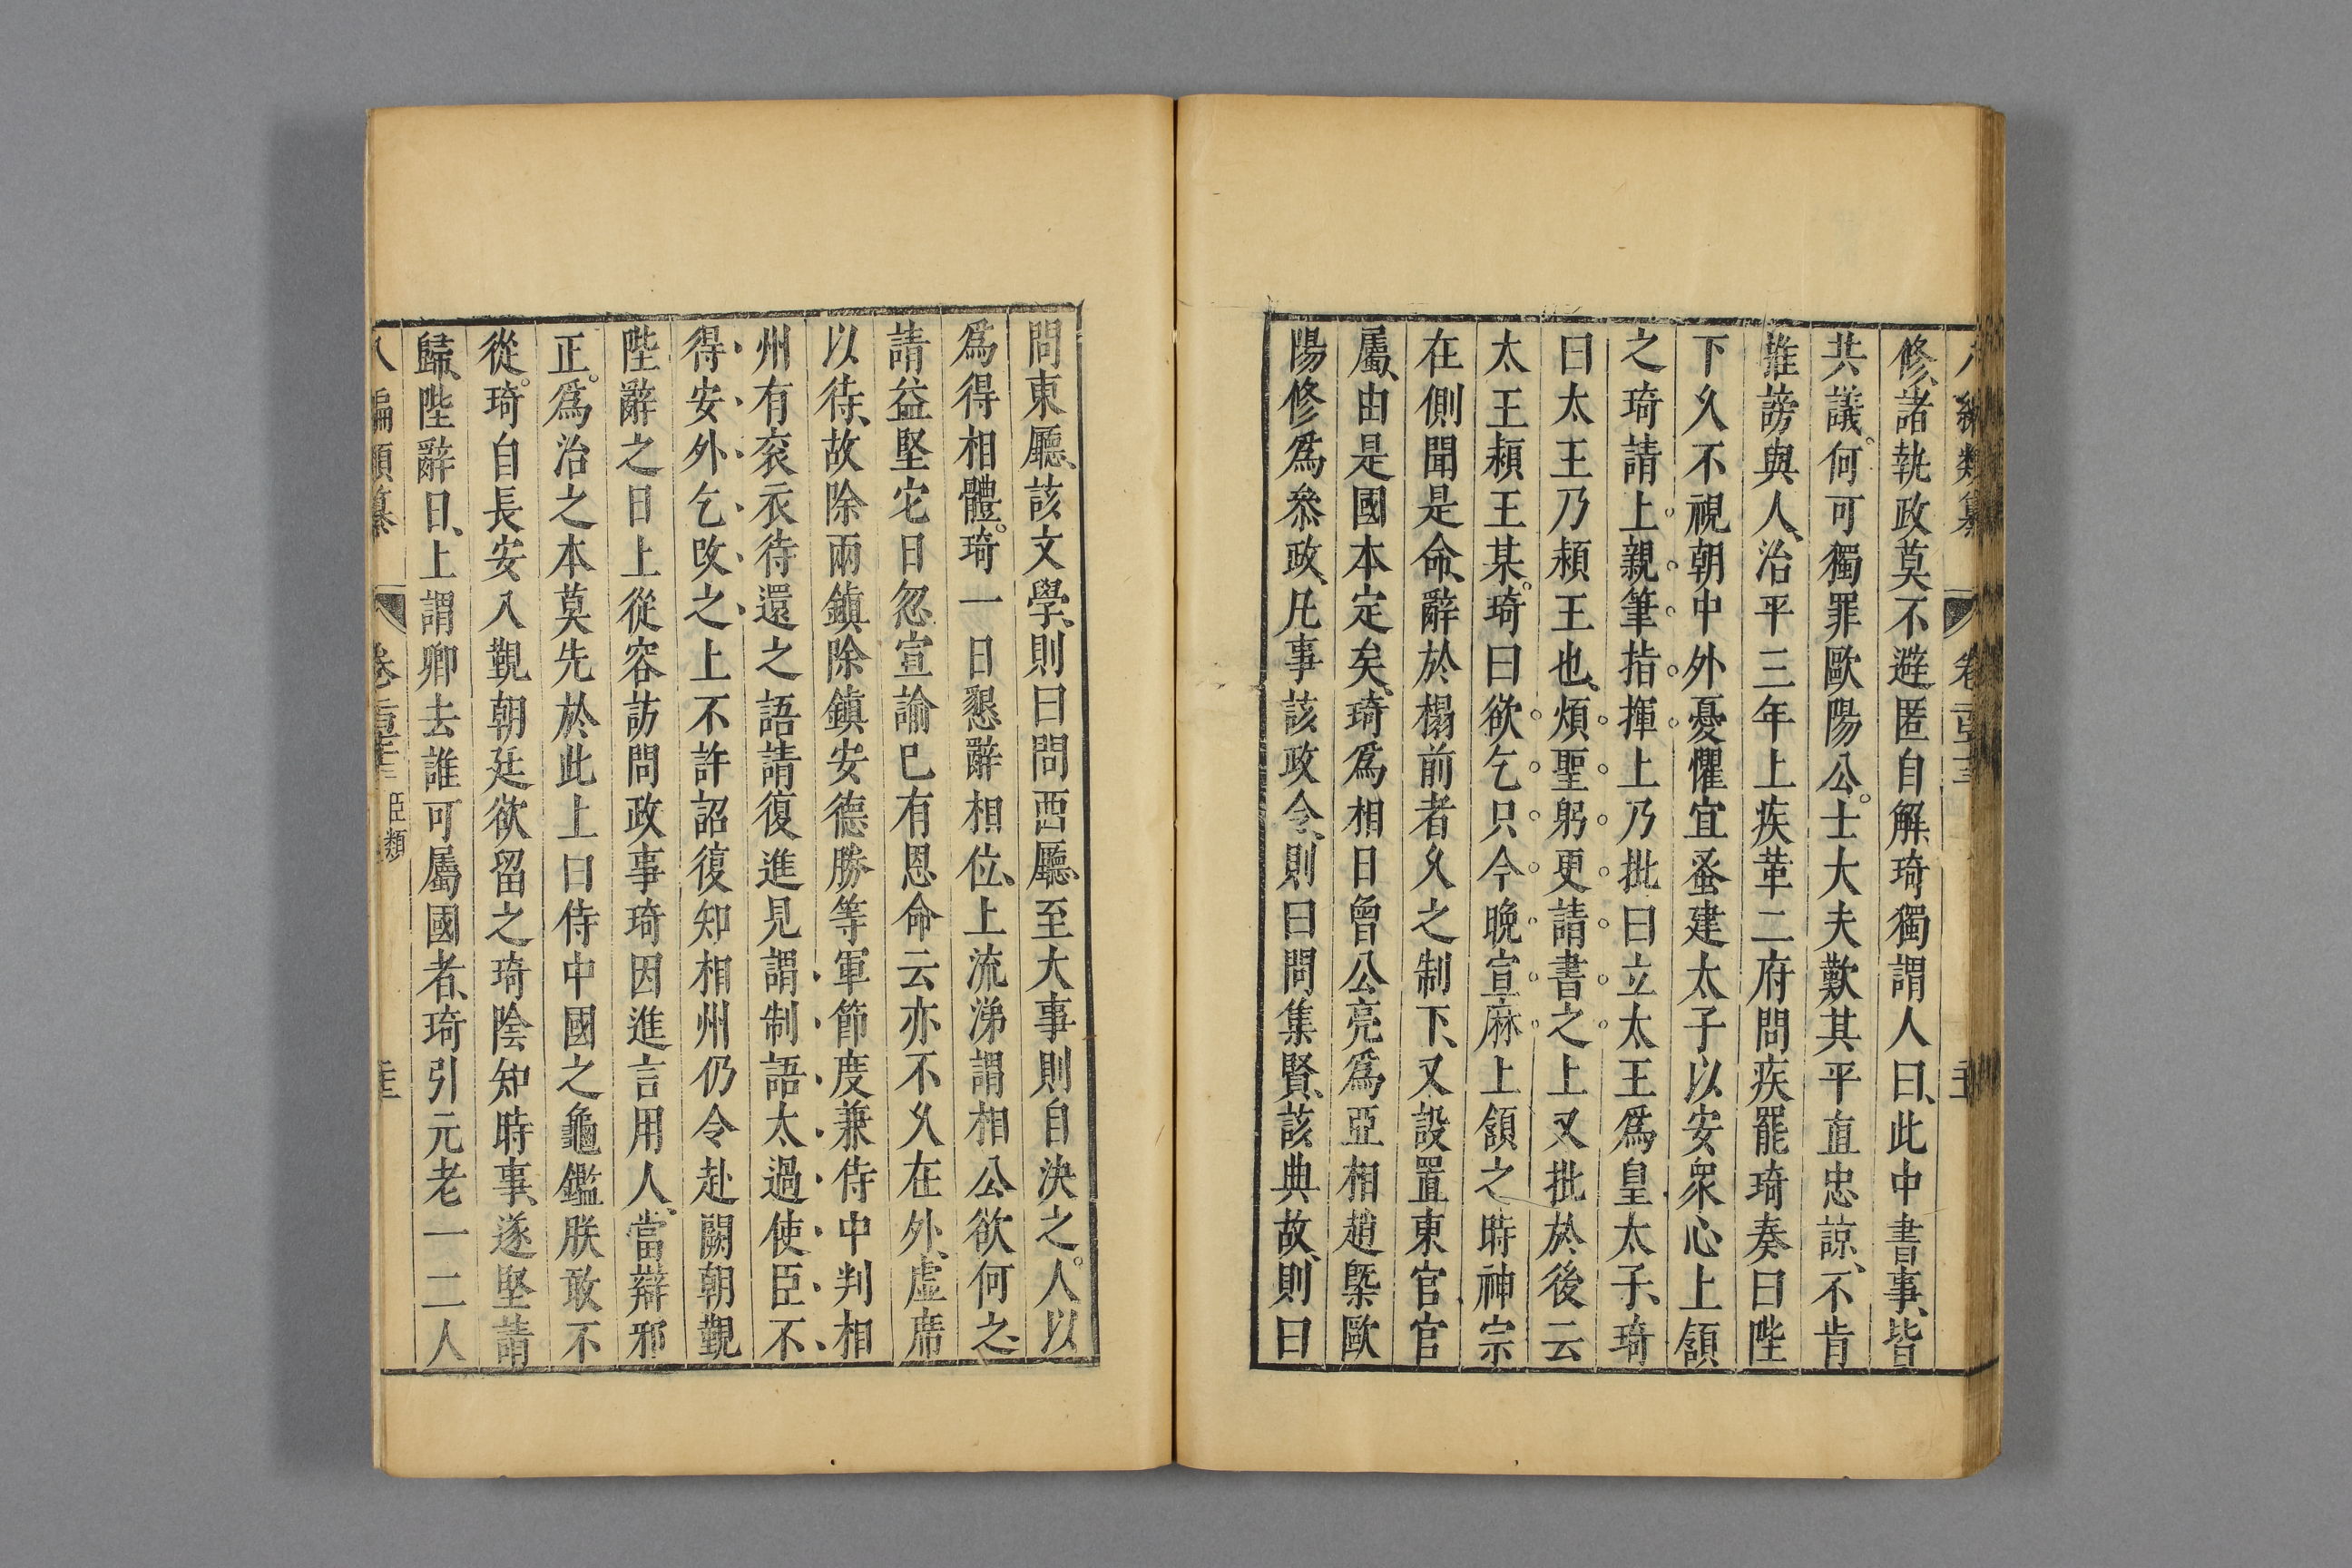 八編類纂 卷一百十三
修諸執政莫不避匿自解琦獨謂人曰此中書事皆
共議何可獨罪歐陽公士大夫歎其平直忠諒不肯
推謗與人治平三年上疾革二府問疾罷琦奏曰陛
下久不視朝中外憂懼宜蚤建太子以安衆心上頷
之琦請上親筆指揮上乃批曰立太王爲皇太子琦
曰太王乃頴王也煩聖躬更請書之上又批於後云
太王頴王某琦曰欲乞只今晚宣麻上頷之時神宗
在側聞是命辭於榻前者久之制下又設置東官官
屬由是國本定矣琦爲相日曾公亮爲亞相趙槩歐
陽修爲叅政凡事該政令則曰問集賢該典故則曰
問東廳該文學則曰問西廳至大事則自決之人以
爲得相體琦一日懇辭相位上流涕謂相公欲何之
請益堅它日忽宣諭已有恩命云亦不久在外虛席
以待故除兩鎮除鎮安德勝等軍節度兼侍中判相
州有衮衣待還之語請復進見謂制語太過使臣不
得安外乞改之上不許詔復知相州仍令赴闕朝覲
陛辭之日上從容訪問政事琦因進言用人當辯邪
正爲治之本莫先於此上曰侍中國之龜鑑朕敢不
從琦自長安入覲朝廷欲留之琦陰知時事遂堅請
歸陛辭日上謂卿去誰可屬國者琦引元老一二人
八編類纂 卷一百十三 臣類